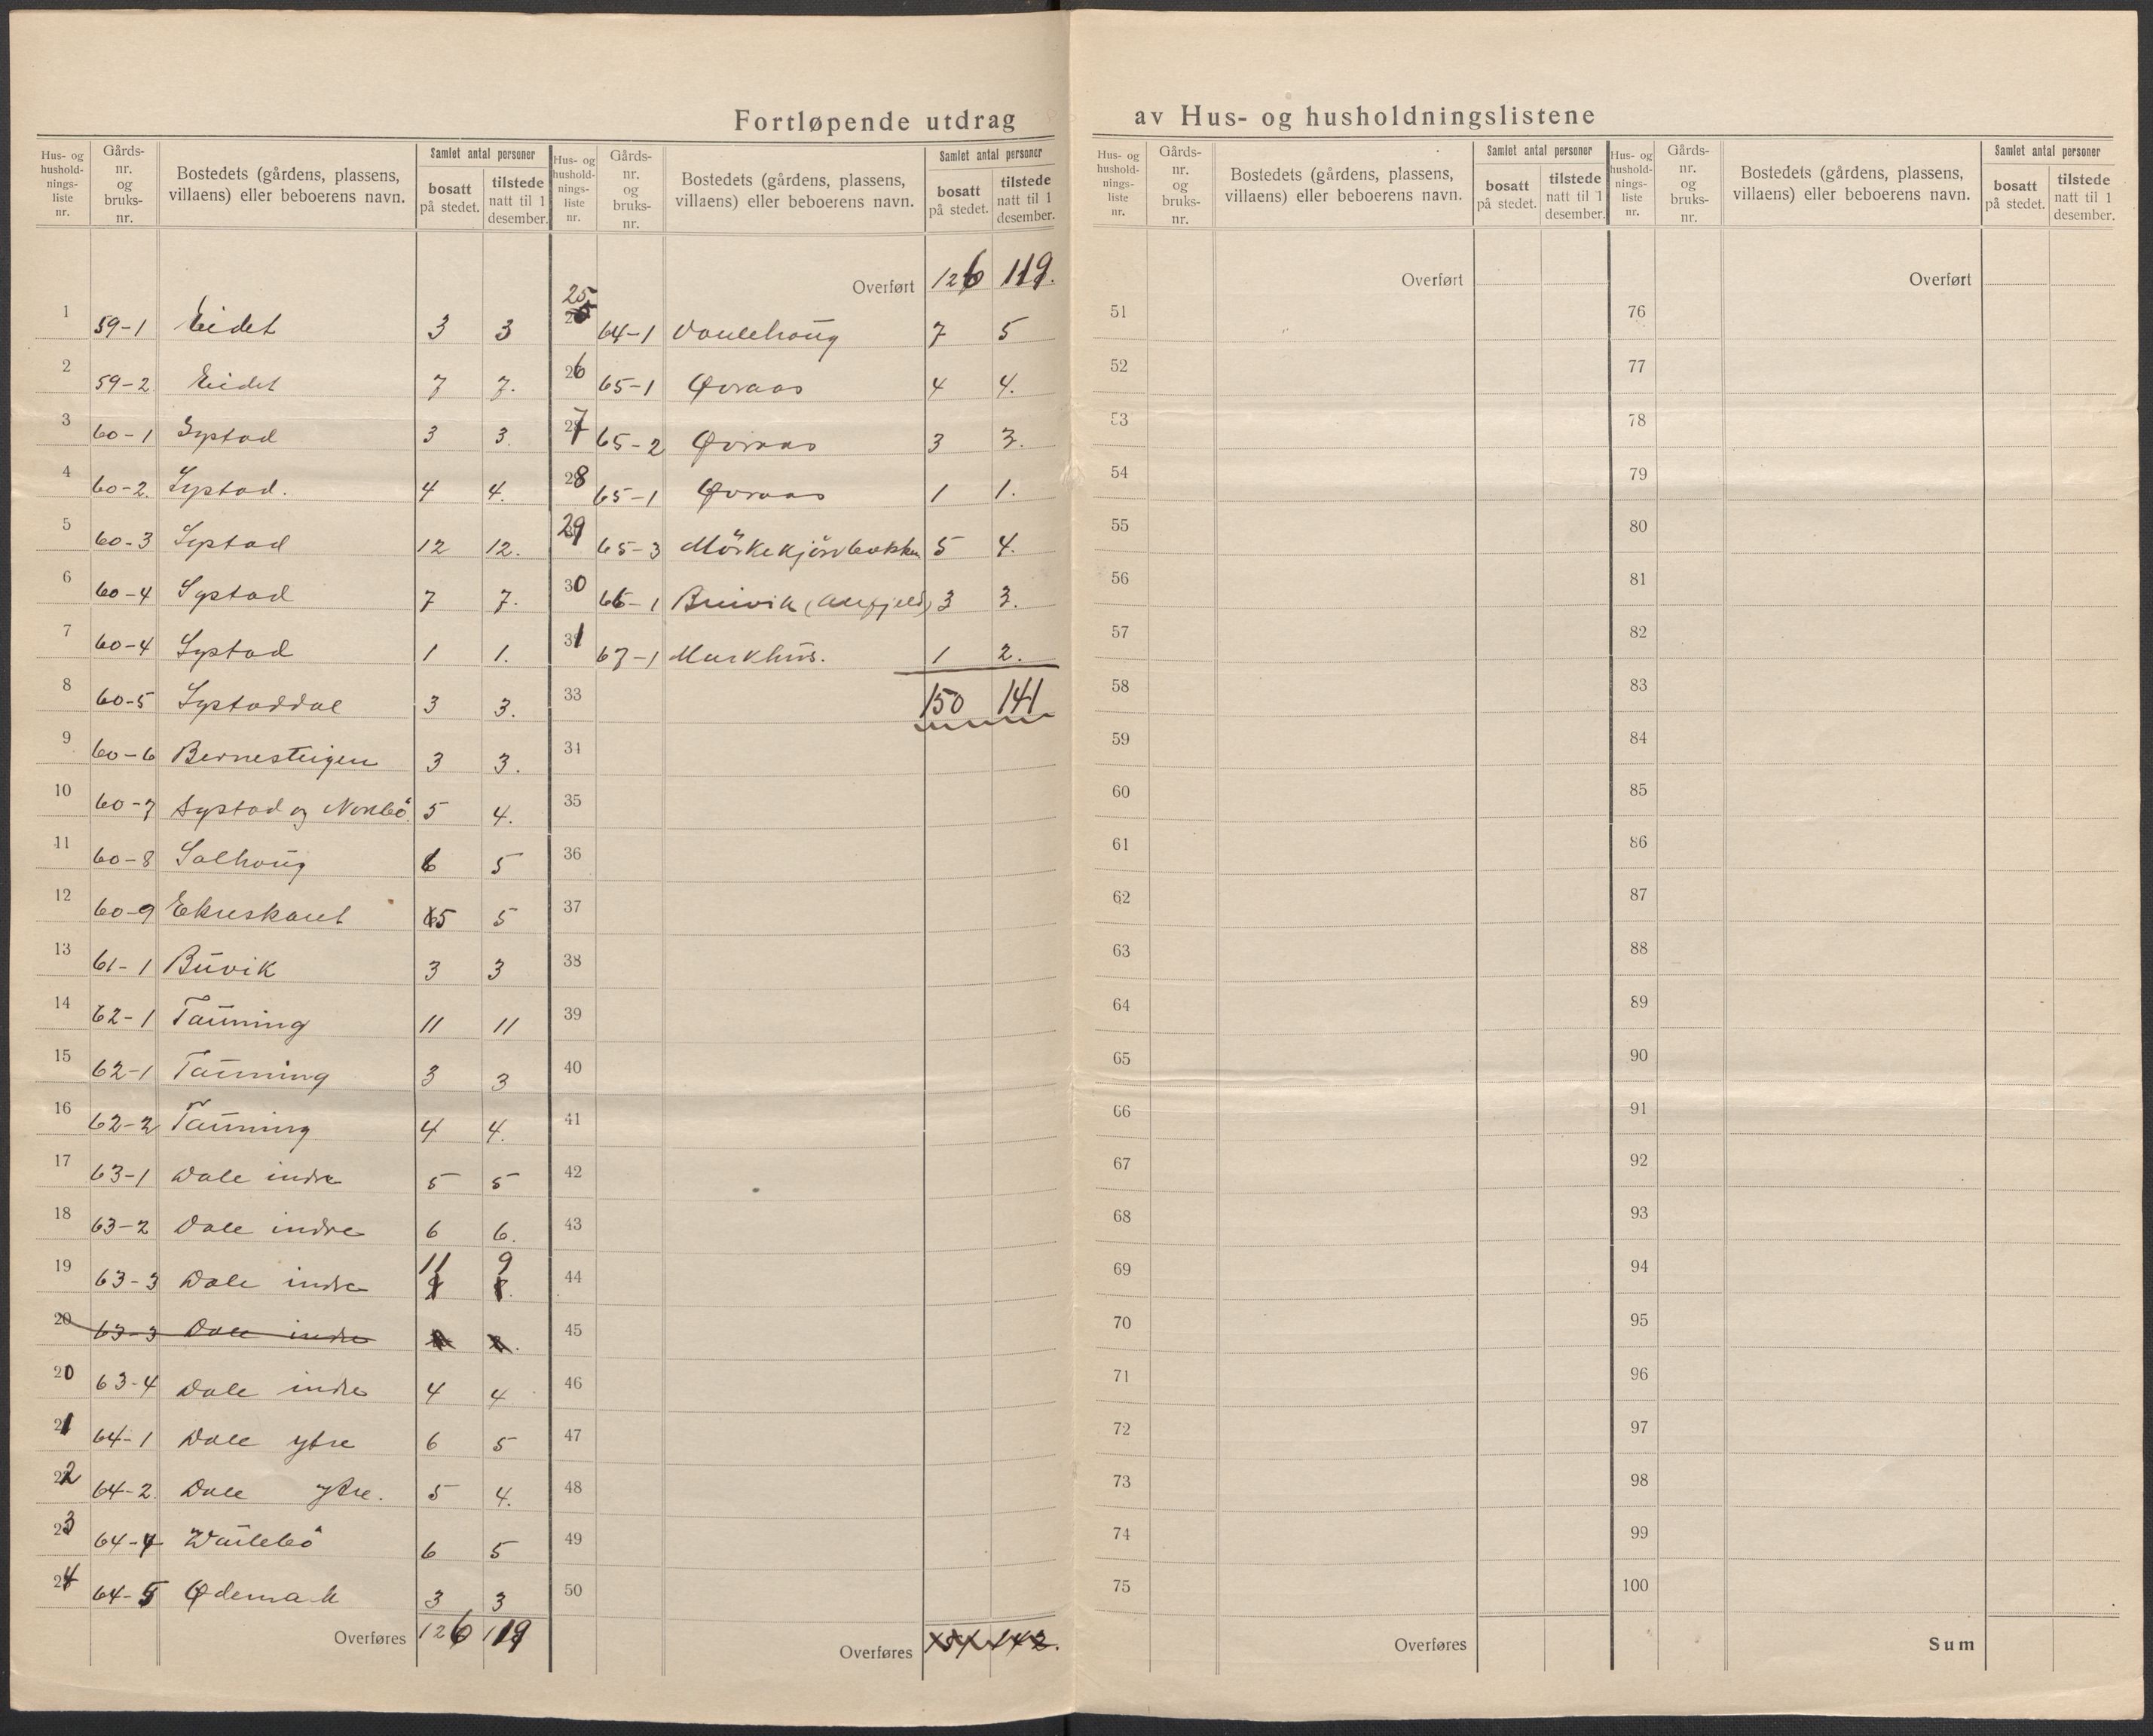 Fortløpende utdrag av Hus- og husholdningslistene
Hus- og hushold-nings-liste nr. Gårds-nr. og bruks-nr. Bostedets (gårdens, plassens, villaens) eller beboerens navn. Samlet antal personer bosatt på stedet. tilstede natt til 1 desember.
1 59-1 Eidet 3 3
2 59-2 Eidet 7 7.
3 60-1 Systad 3 3.
4 60-2. Systad. 4 4.
5 60-3 Systad 12 12.
6 60-4 Systad 7 7.
7 60-4 Systad 1 1.
8 60-5 Systaddal 3 3.
9 60-6 Bernesteigen 3 3.
10 60-7 Systad og Nonbö. 5 4.
11 60-8 Solhoug 6 5
12 60-9 Ekreskaret 5 5
13 61-1 Buvik 3 3
14 62-1 Tauning 11 11
15 62-1 Tauning 3 3
16 62-2 Tauning 4 4.
17 63-1 Dale indre 5 5
18 63-2 Dale indre 6 6.
19 63-3 Dale indre 11 9
20 63-3 Dale indre
20 63-4 Dale indre 4 4
21 64-1 Dale ytre 6 5
22 64-2. Dale ytre. 5 4.
23 64-4 6 5
24 64-5 Ødemark 3 3
Overføres 126 119
Hus- og hushold-nings-liste nr. Gårds-nr. og bruks-nr. Bostedets (gårdens, plassens, villaens) eller beboerens navn. Samlet antal personer bosatt på stedet. tilstede natt til 1 desember.
Overført 126 119.
25 64-1 7 5
26 65-1 Øvraas 4 4.
27 65-2 Øvraas 3 3.
28 65-1 Øvraas 1 1.
29 65-3 5 4.
30 66-1 3 3.
31 67-1 Markhus. 1 2.
33 150 141
34
35
36
37
38
39
40
41
42
43
44
45
46
47
48
49
50
Overføres 142.
Hus- og hushold-nings-liste nr. Gårds-nr. og bruks-nr. Bostedets (gårdens, plassens, villaens) eller beboerens navn. Samlet antal personer bosatt på stedet. tilstede natt til 1 desember.
Overført
51
52
53
54
55
56
57
58
59
60
61
62
63
64
65
66
67
68
69
70
71
72
73
74
75
Overføres
Hus- og hushold-nings-liste nr. Gårds-nr. og bruks-nr. Bostedets (gårdens, plassens, villaens) eller beboerens navn. Samlet antal personer bosatt på stedet. tilstede natt til 1 desember.
Overført
76
77
78
79
80
81
82
83
84
85
86
87
88
89
90
91
92
93
94
95
96
97
98
99
100
Sum